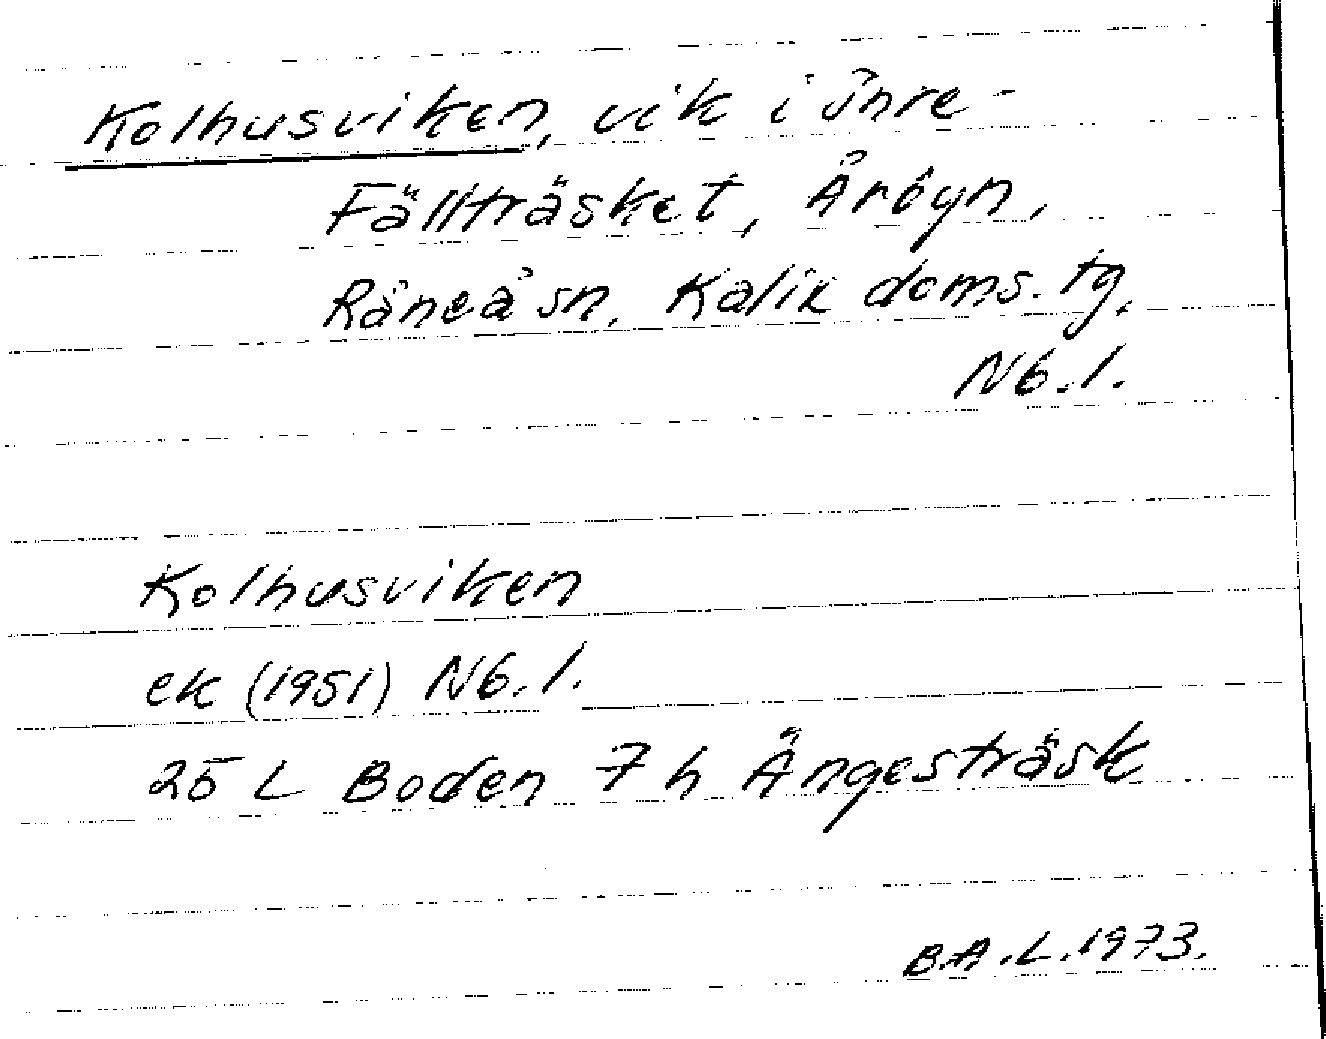 Kolhusviken, vik i inre-
Fällträsket, Årbyn,
Råneå sn, Kalix doms. tg,
Nb.l.
Kolhusviken
ek (1951) Nb.l.
25 L Boden 7 h Ängesträsk
B.A.L.1973.